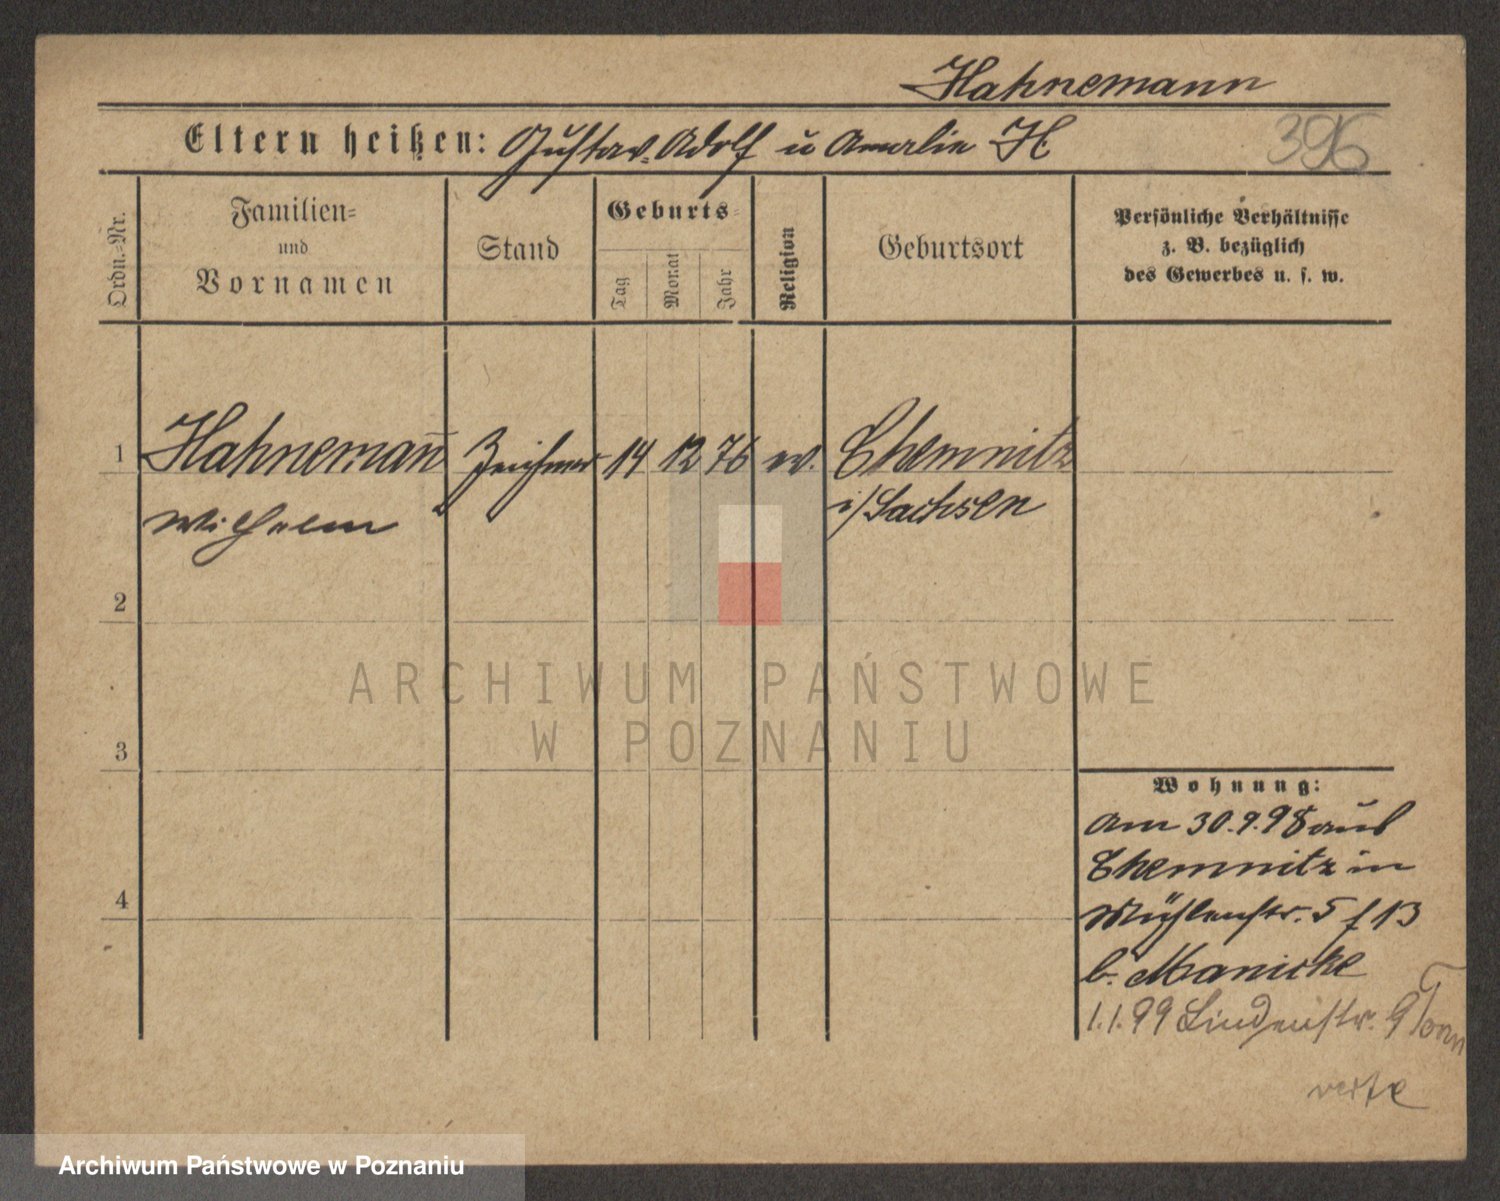 Hahnemann
Eltern heißen: Gustav Adolf u Amalie H.
396
Ordn.-Nr.
Familien-
und
Vornamen
Stand
Geburts-
Tag
Monat
Jahr
Religion
Geburtsort
Persönliche Verhältnisse
z. B. bezüglich
des Gewerbes u. s. w.
1 Hahneman̄ Zeichner 14 12 76 ev. Chemnitz
Wilhelm i/Sachsen
2
3
4
Wohnung:
am 30.9.98 aus
Chemnitz in
Mühlenstr. 5 f 13
b. Manicke
1.1.99 Lindenstr. 9
verte
ARCHIWUM PAŃSTWOWE
W POZNANIU
Archiwum Państwowe w Poznaniu